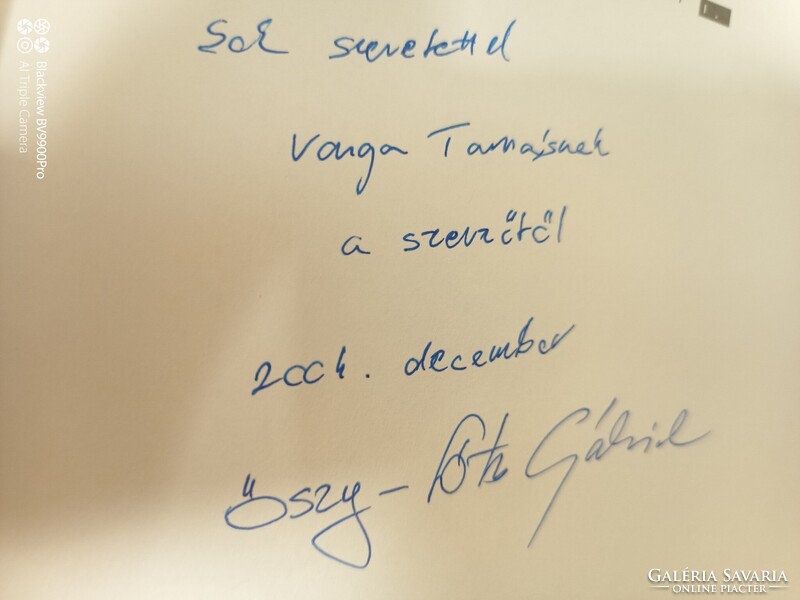 Sok szeretettel
Varga Tamásnak
a szerzőtől
2004. december
Őszy-Tóth Gábriel
Blackview BV9900Pro
AI Triple Camera
GALÉRIA SAVARIA
ONLINE PIACTÉR